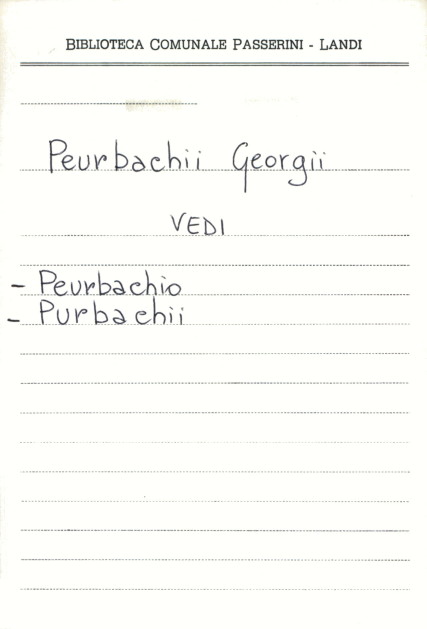 BIBLIOTECA COMUNALE PASSERINI - LANDI
Peurbachii Georgii
VEDI
- Peurbachio
- Purbachii